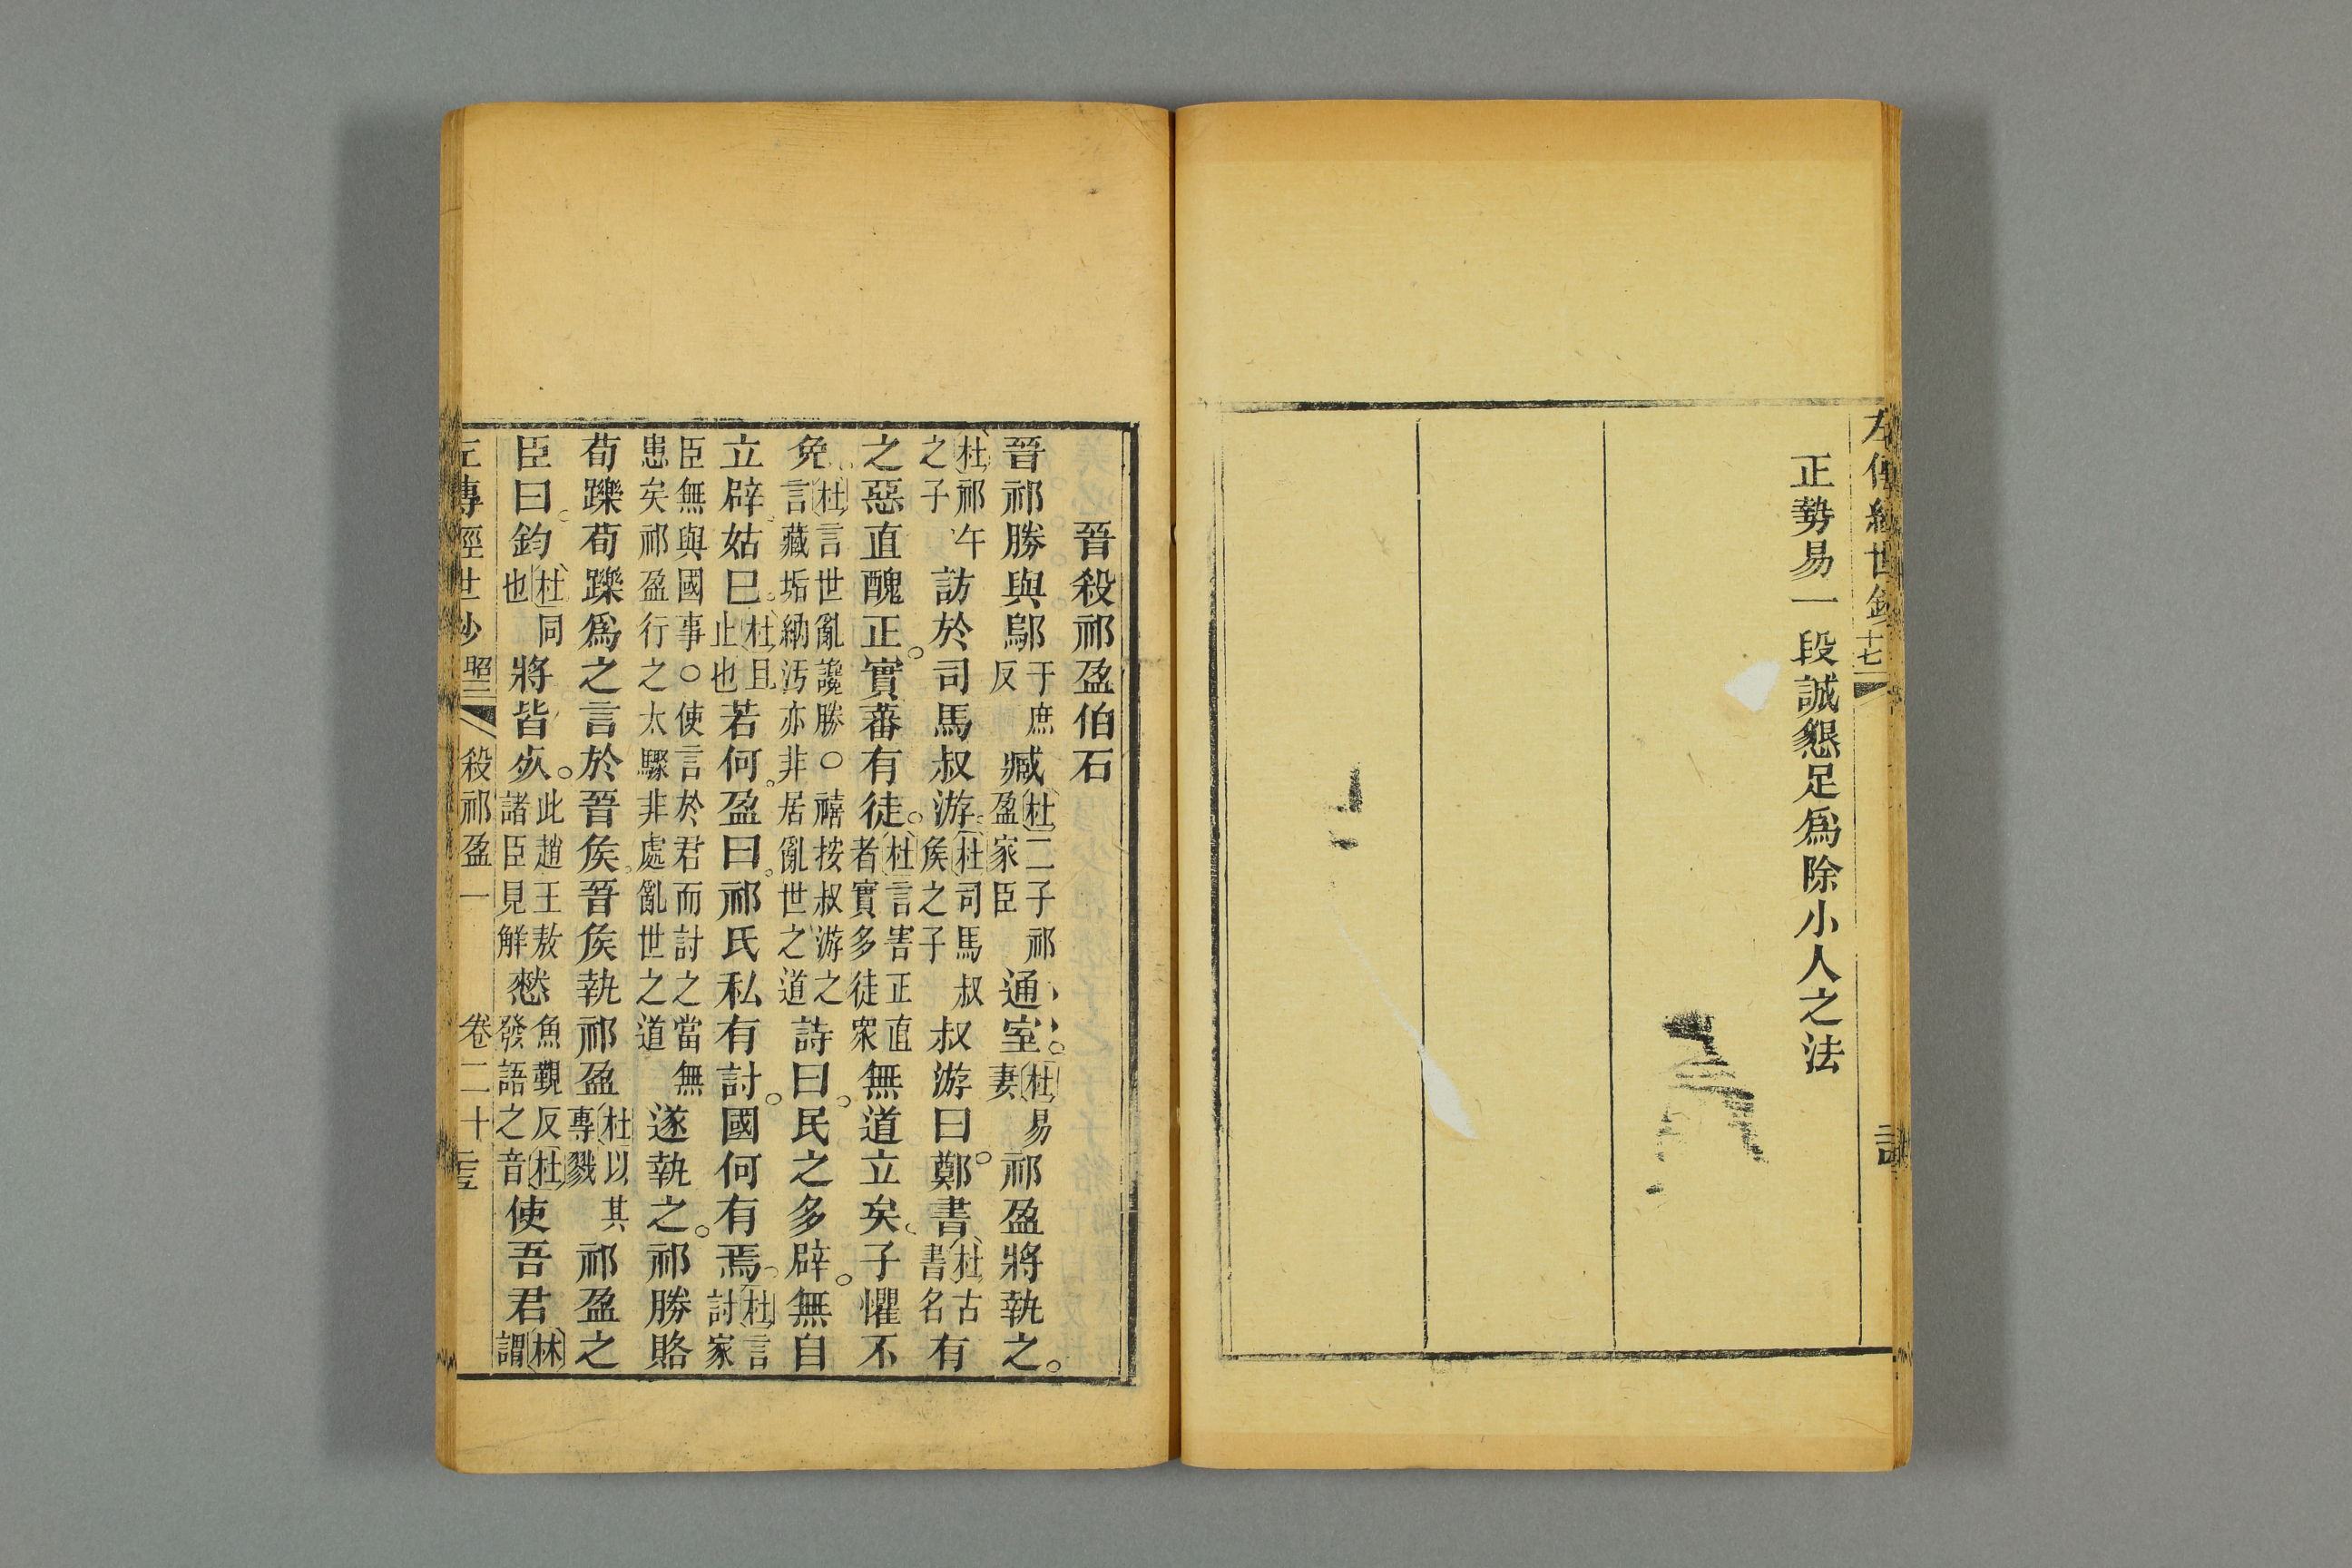 左傳經世鈔 十七
正勢易一段誠懇足爲除小人之法
晉殺祁盈伯石
晉祁勝與鄔于庶反臧杜二子祁盈家臣通室杜易妻祁盈將執之
杜祁午之子訪於司馬叔游杜司馬叔矦之子叔游曰鄭書杜古書名有
之惡直醜正實蕃有徒杜言害正直者實多徒衆無道立矣子懼不
免杜言世亂讒勝○禧按叔游之言藏垢納汚亦非居亂世之道詩曰民之多辟無自
立辟姑已杜且止也若何盈曰祁氏私有討國何有焉杜言討家
臣無與國事○使言於君而討之當無患矣祁盈行之太驟非處亂世之道遂執之祁勝賂
荀躒荀躒爲之言於晉矦晉矦執祁盈杜以其專戮祁盈之
臣曰鈞杜同也將皆㱙此趙王敖諸臣見解憖魚覲反杜發語之音使吾君林謂
左傳經世鈔 昭二 殺祁盈一 卷二十